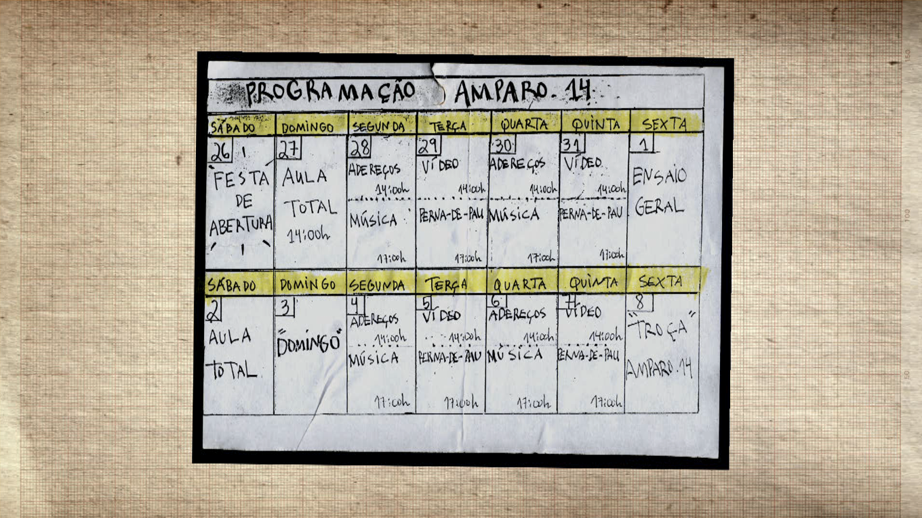 PROGRAMAÇÃO AMPARO.14
SÁBADO DOMINGO SEGUNDA TERÇA QUARTA QUINTA SEXTA
26 27 28 29 30 31 1
"FESTA DE ABERTURA"
AULA TOTAL 14:00h
ADEREÇOS 14:00h
MÚSICA 17:00h
VÍDEO 14:00h
PERNA-DE-PAU 17:00h
ADEREÇOS 14:00h
MÚSICA 17:00h
VÍDEO 14:00h
PERNA-DE-PAU 17:00h
ENSAIO GERAL
SÁBADO DOMINGO SEGUNDA TERÇA QUARTA QUINTA SEXTA
2 3 4 5 6 7 8
AULA TOTAL
"DOMINGO"
ADEREÇOS 14:00h
MÚSICA 17:00h
VÍDEO 14:00h
PERNA-DE-PAU 17:00h
ADEREÇOS 14:00h
MÚSICA 17:00h
VÍDEO 14:00h
PERNA-DE-PAU 17:00h
"TROÇA" AMPARO.14